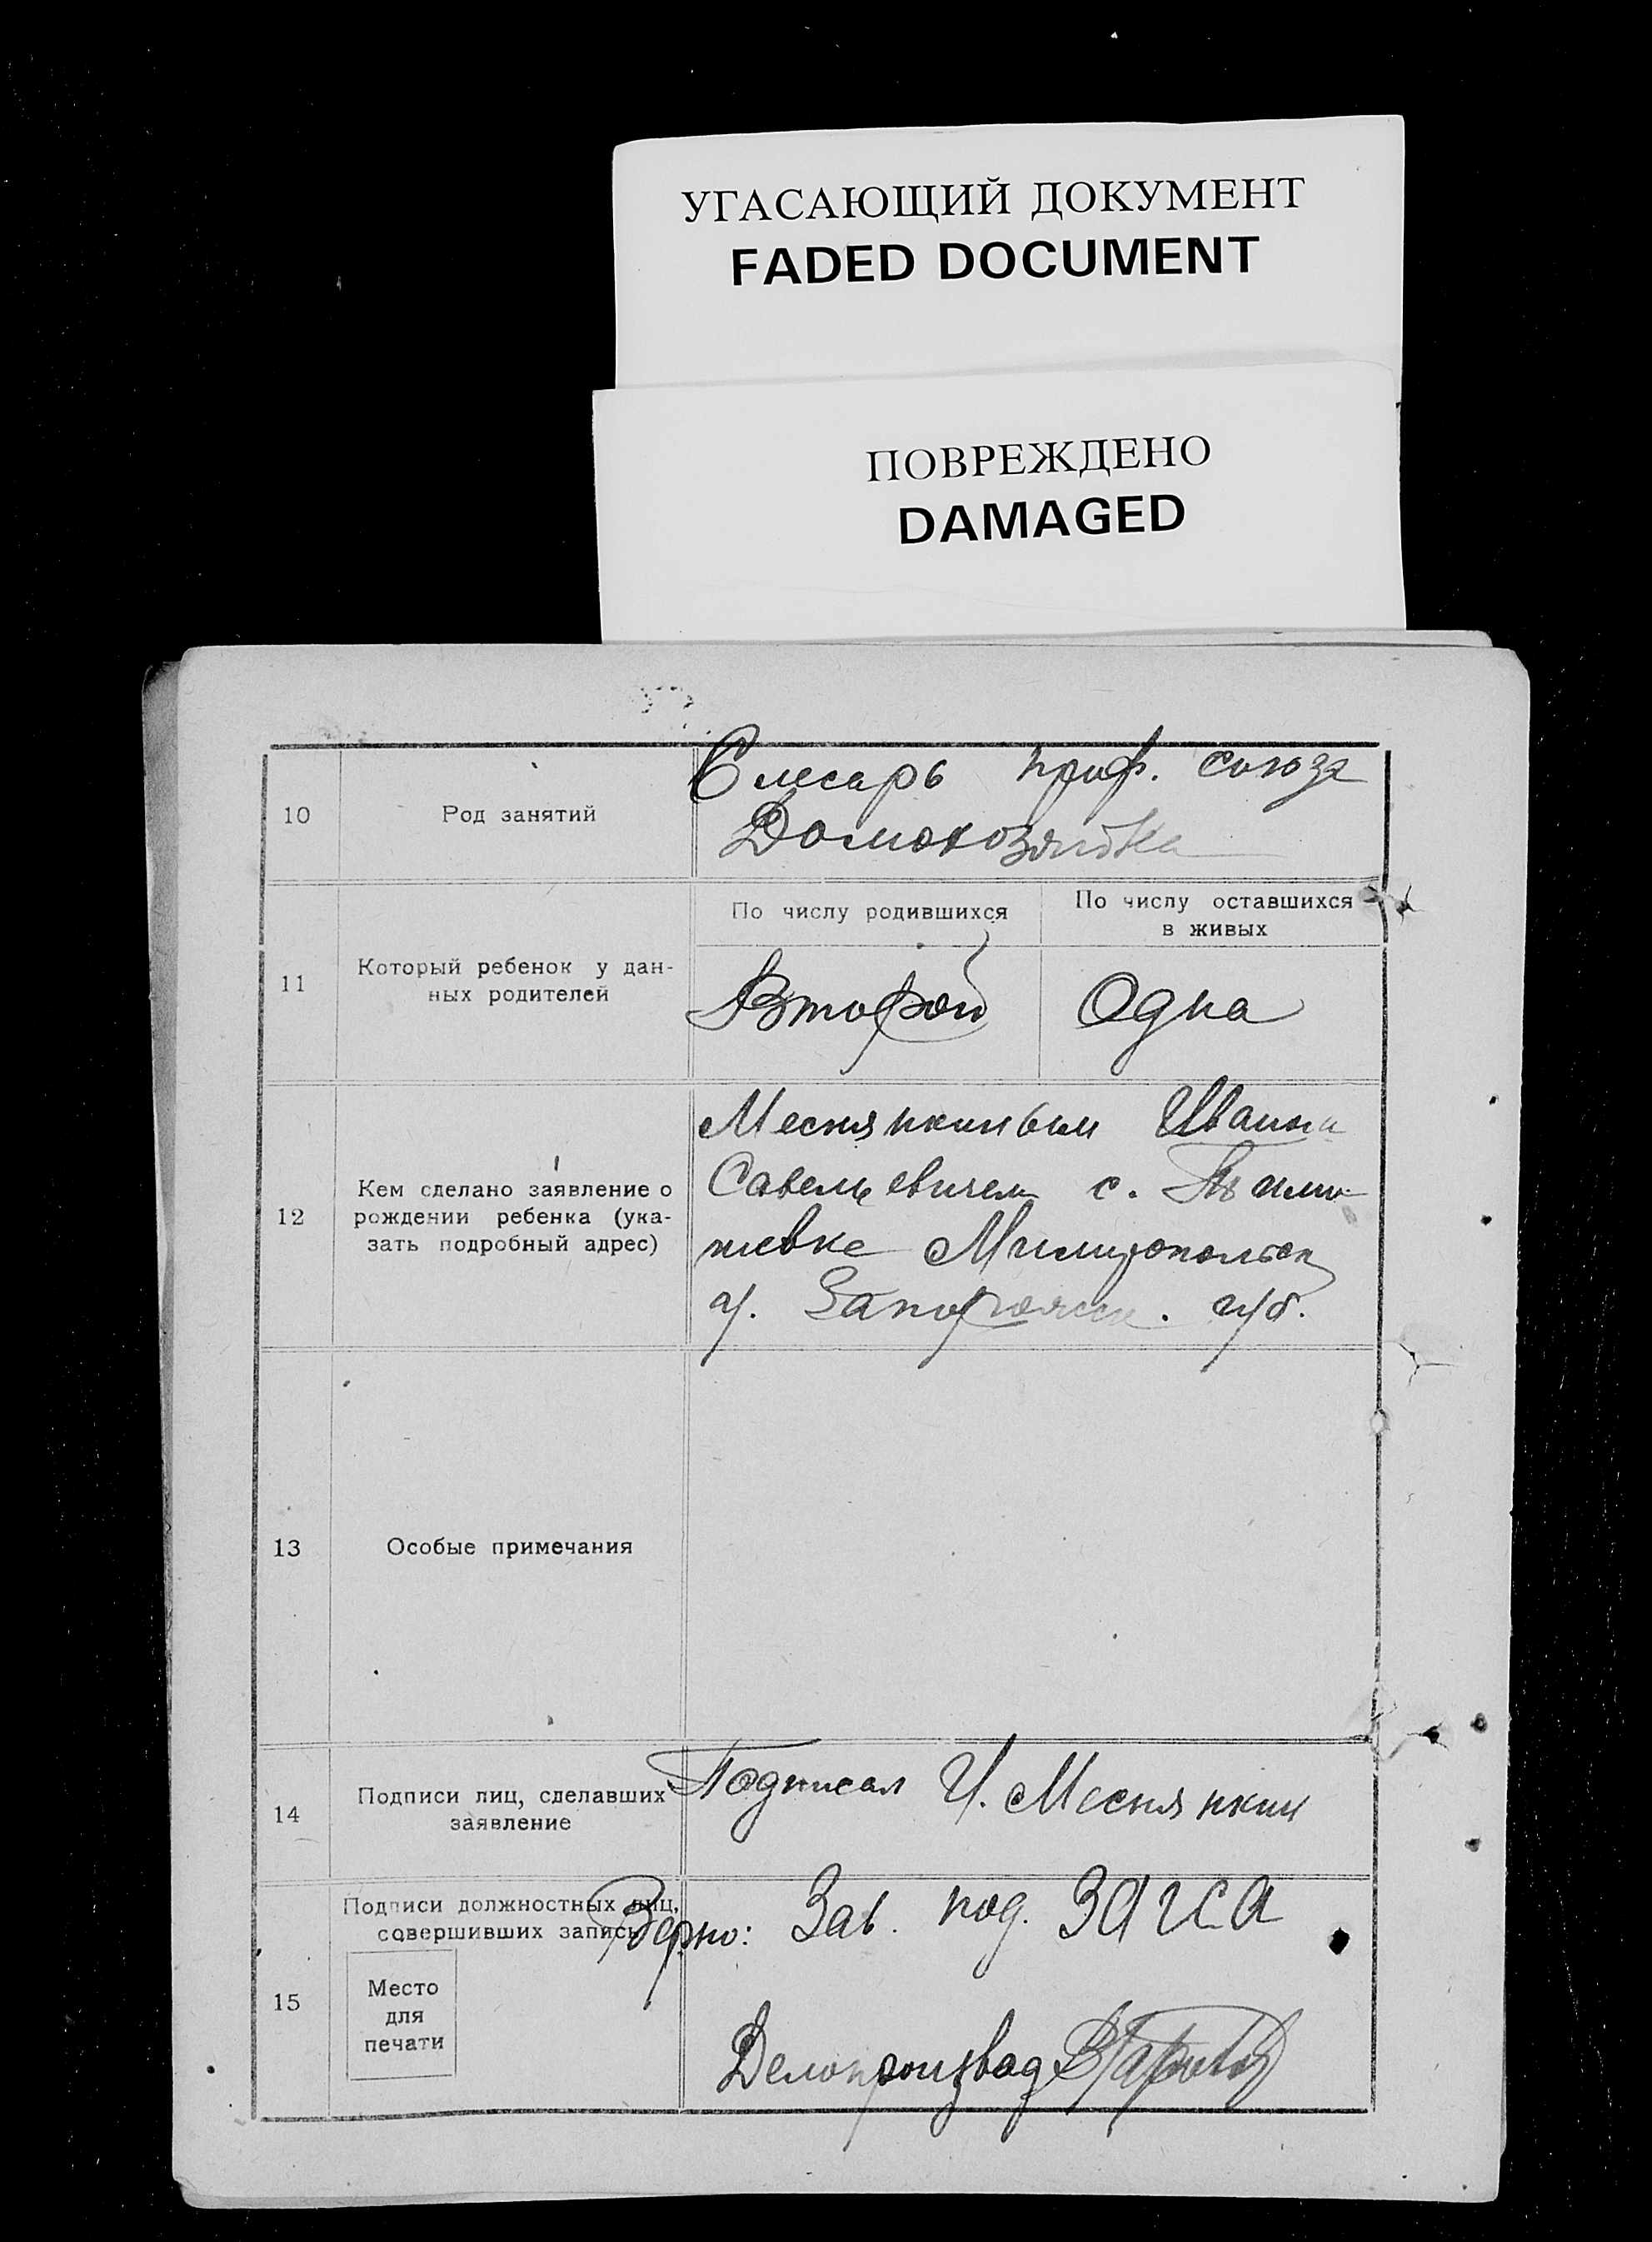 УГАСАЮЩИЙ ДОКУМЕНТ
FADED DOCUMENT
ПОВРЕЖДЕНО
DAMAGED
10
Род занятий
Слесарь проф. союза
Домохозяйка
11
Который ребенок у дан-
ных родителей
По числу родившихся
По числу оставшихся
в живых
Второй
Одна
12
Кем сделано заявление о
рождении ребенка (ука-
зать подробный адрес)
Меснянкиным Иваном
Савельевичем с.
Мелитопольск
у. Запорожск. губ.
13
Особые примечания
14
Подписи лиц, сделавших
заявление
Подписал И. Меснянкин
15
Подписи должностных лиц,
совершивших запись
Место
для
печати
Верно: Зав. под. ЗАГСА
Делопроизвод